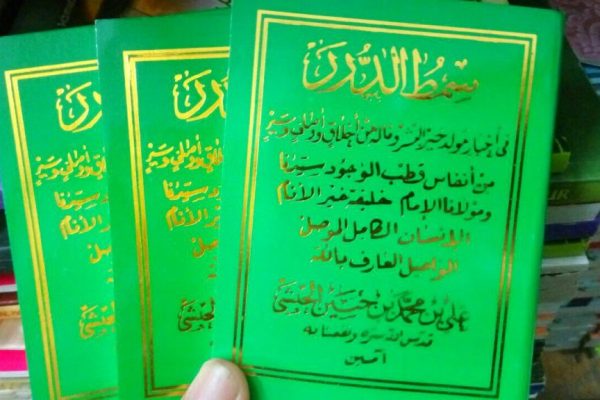 سمط الدرر
في أخبار مولد خير البشر وماله من أخلاق وأوصاف وسير
من أنفاس قطب الوجود سيدنا
ومولانا الإمام خليفة خير الأنام
الإنسان الكامل الموصل
الواصل العارف بالله
علي بن محمد بن حسين الحبشي
قدس الله سره ونفعنا به
آمين